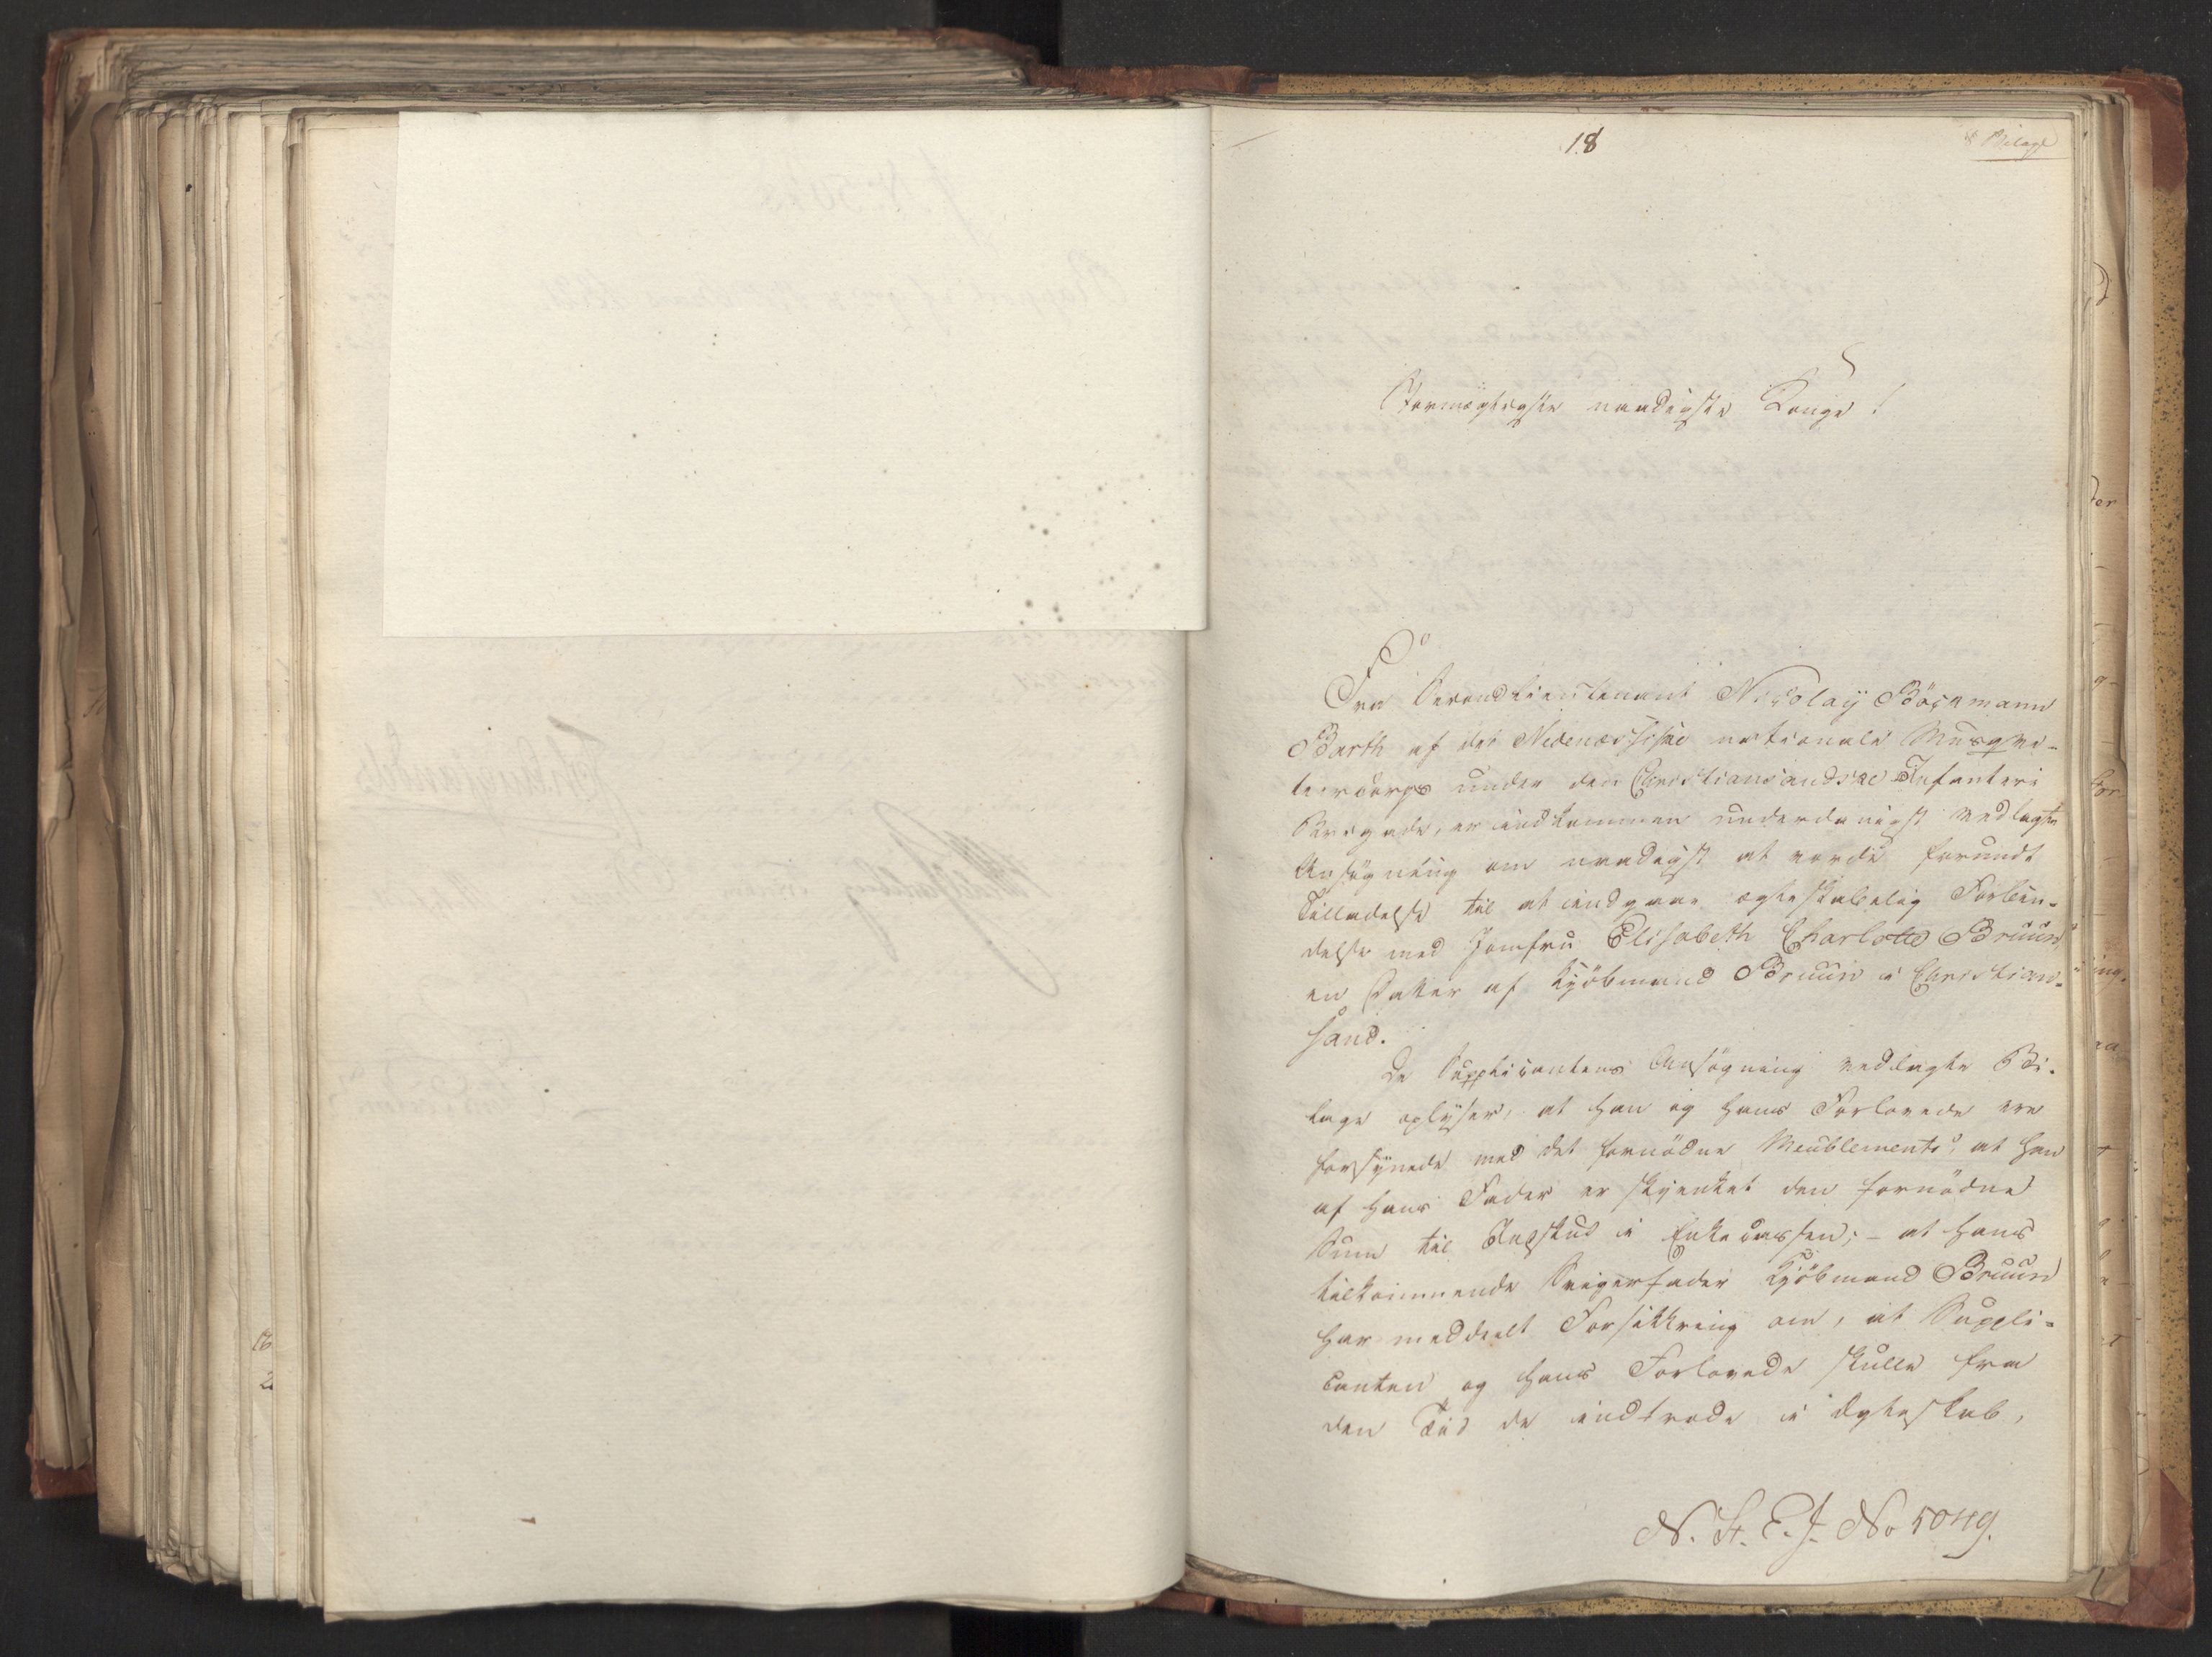 18
8 Bilage
Stormægtigste naadigste Konge!
Fra Secondlieutenant Nicolaÿ Böckmann
Barth af det Nedenæsiske nationale Musqve-
teercorps under den Christiansandske Infanteri
Brigade, er indkommen underdanigst vedlagte
Ansögning om naadigst at vorde forundt
Tilladelse til at indgaae ægteskabelig Forbin-
delse med Jomfru Elisabeth Charlotte Bruun,
en Datter af Kjöbmand Bruun i Christian-
sand.
De Supplicantens Ansögning vedlagte Bi-
lage oplÿser, at han og hans Forlovede ere
forsÿnede med det fornödne Meublement, at han
af hans Fader er skjenket den fornödne
Sum til Indskud i Enkecassen; - at hans
tilkommende Svigerfader Kjöbmand Bruun
har meddeelt Forsikkring om, at Suppli-
canten og hans Forlovede skulle fra
den Tiid de indtræde i Ægteskab,
N. St. E. J. No 5049.